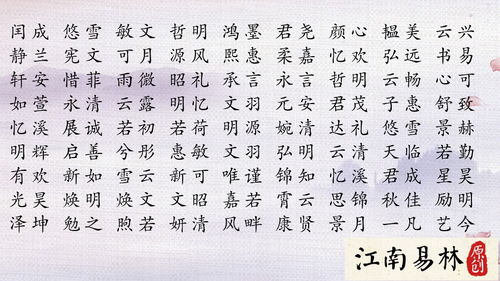 闰成 悠雪 敏文 哲明 鸿墨 君尧 颜心 韫美 云兴
静兰 宪文 可月 源风 熙惠 柔嘉 忆欢 弘远 书易
轩安 惜菲 雨微 昭礼 承言 永言 哲明 云畅 心可
如萱 永清 云露 明忆 文羽 元安 君茂 子惠 舒致
忆溪 展诚 若初 若荷 明源 婉清 达礼 悠雪 景赫
明辉 启善 兮彤 惠敏 文羽 弘明 云清 天临 若勤
有欢 新如 雪云 新可 唯谨 锦霄 忆溪 君成 星昊
光昊 焕明 焕文 文昭 嘉若 霄云 思锦 秋佳 励明
泽坤 勉之 煦若 妍清 风畔 康贤 景月 一凡 艺今
江南易林
原创